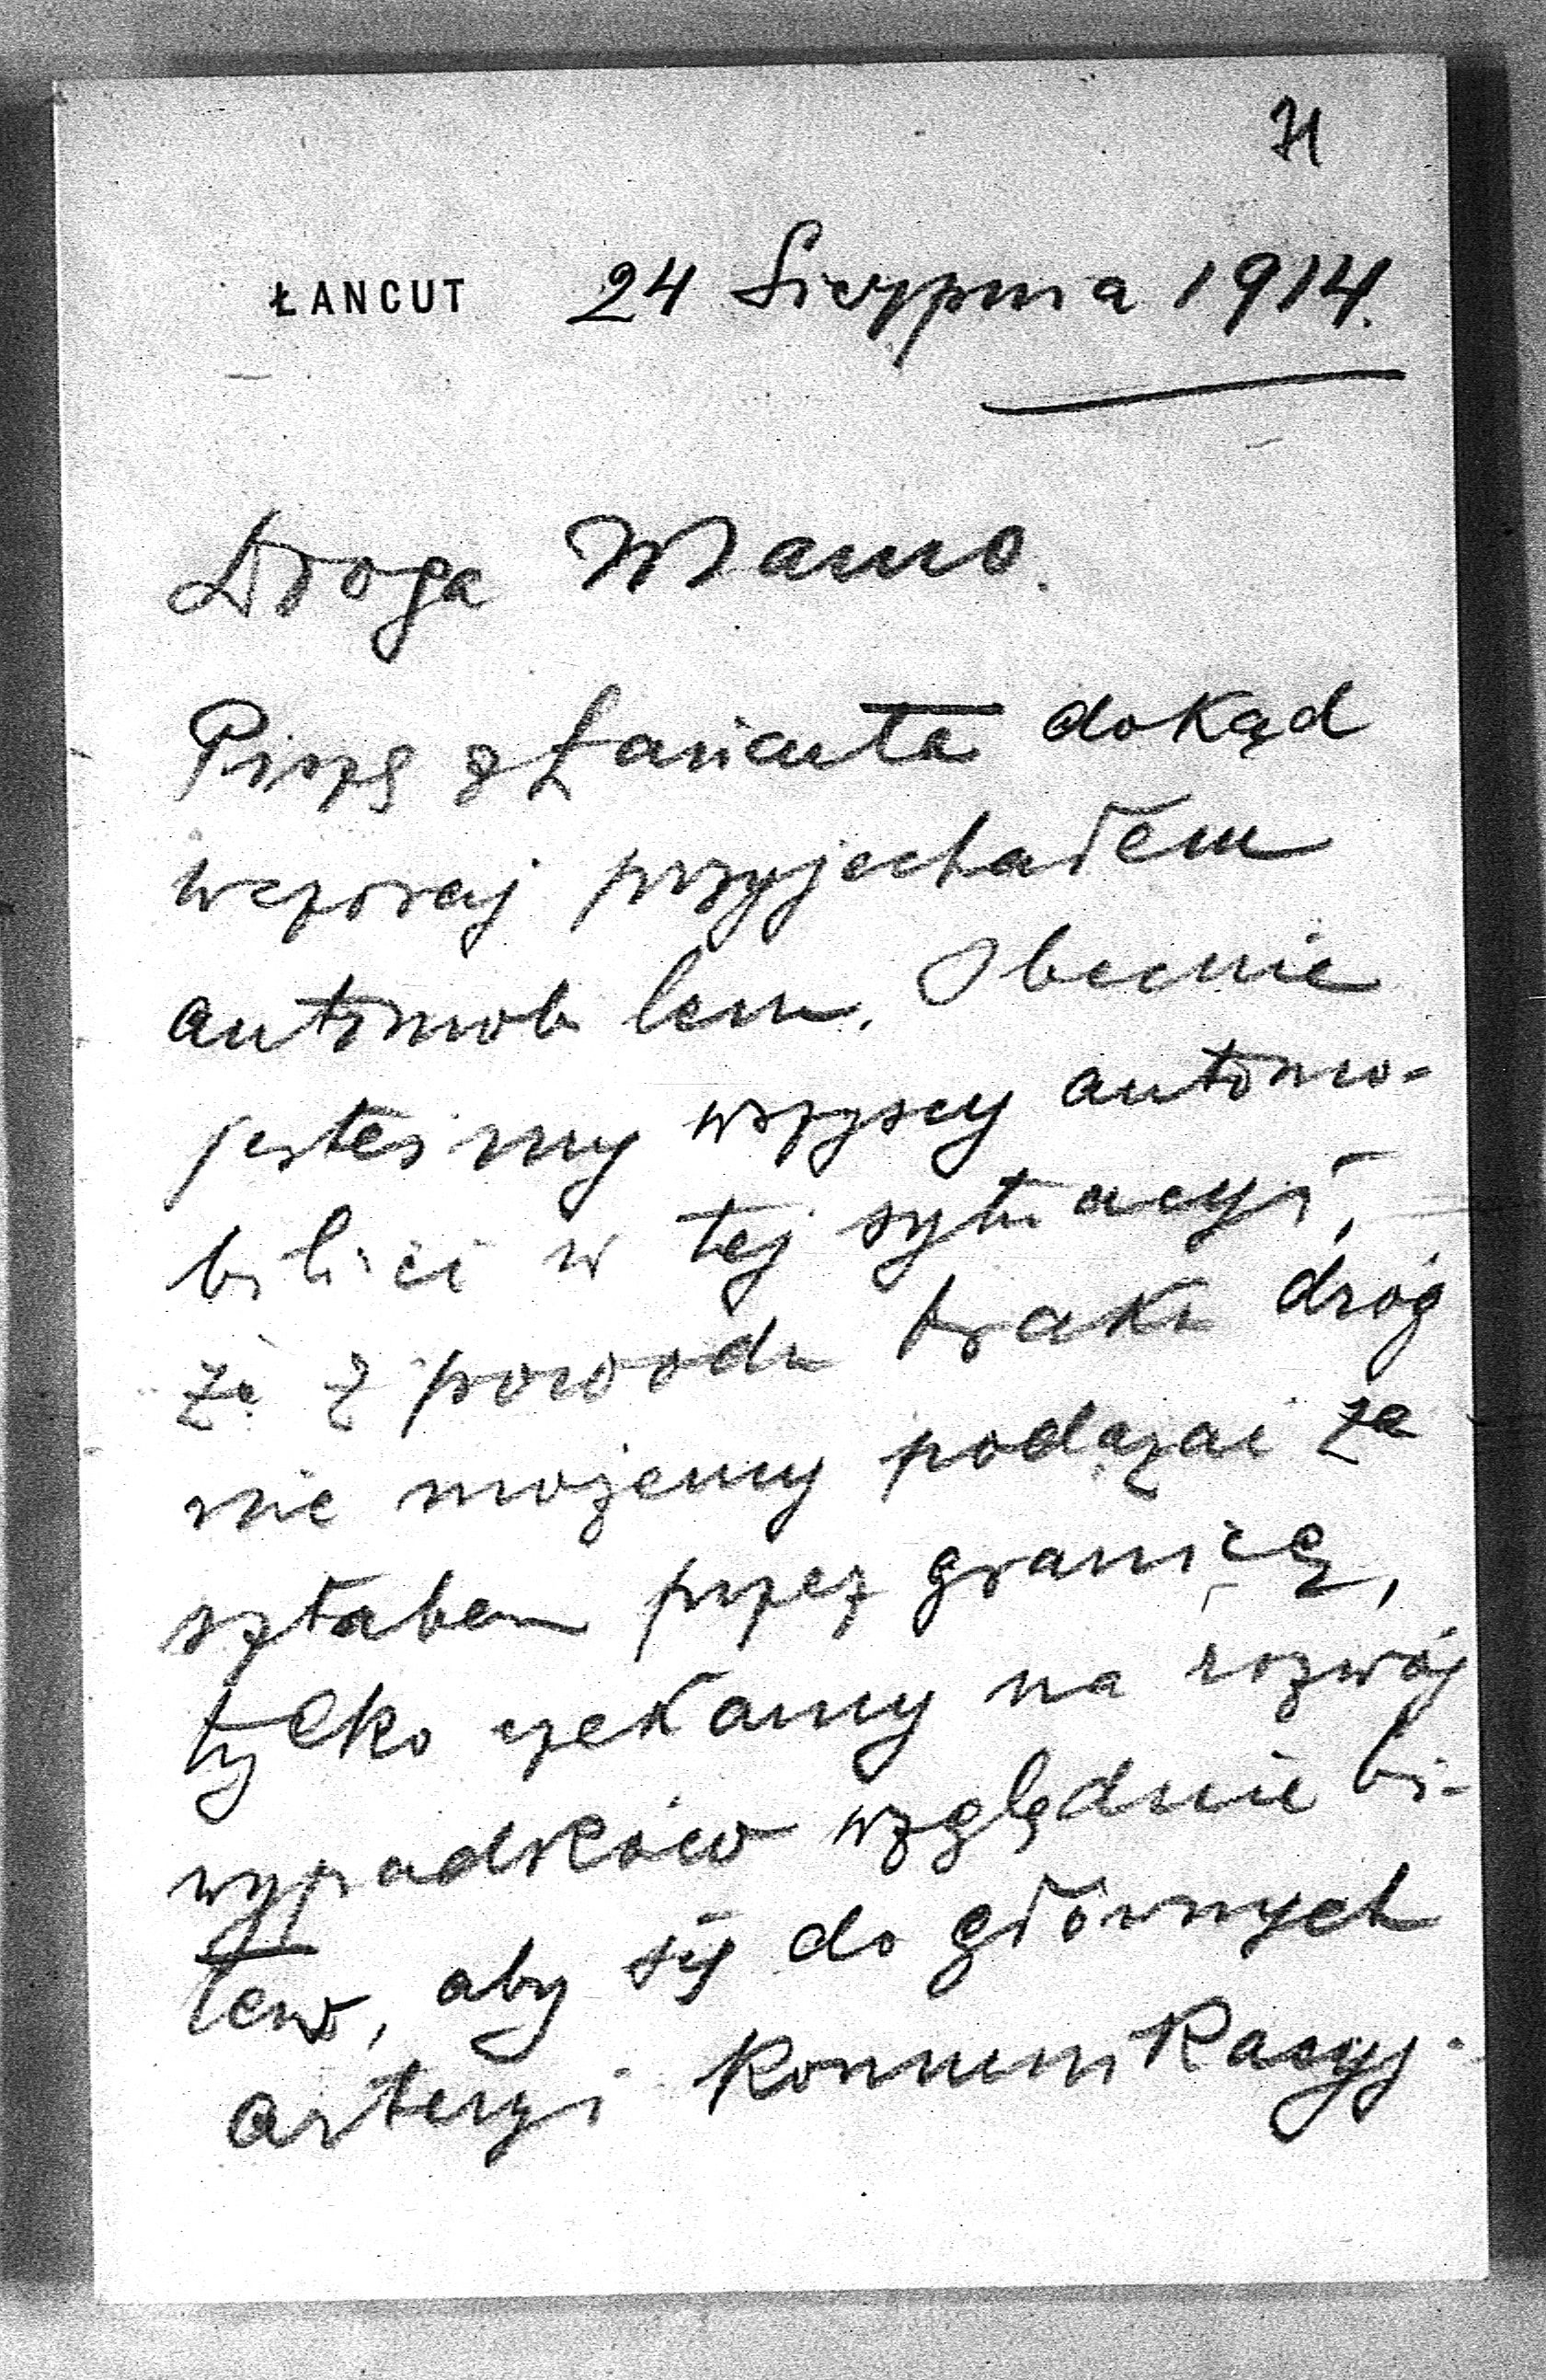 71
ŁANCUT 24 Sierpnia 1914.
Droga Mamo.
Piszę z Łańcuta dokąd
wczoraj przyjechałem
automobilem. Obecnie
jesteśmy wszyscy automo-
biliści w tej sytuacyi,
że z powodu braku dróg
nie możemy podążać za
sztabem przez granicę,
tylko czekamy na rozwój
wypadków względnie bi-
tew, aby się do głównych
arteryi komunikacyj-